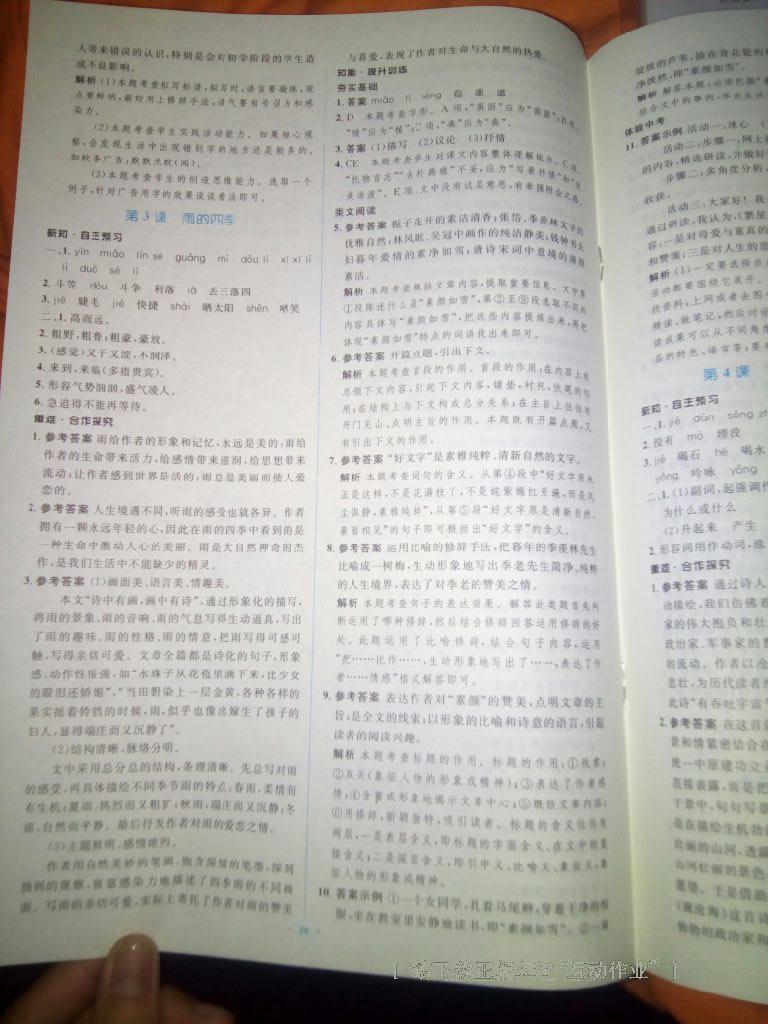 人带来错误的认识,特别是会对初学阶段的学生造
成不良影响。
解析 (1)本题考查拟写标语,拟写时,语言要凝练,观
点要鲜明,最好用上修辞手法,语气要有号召力和感
染力。
(2)本题考查学生实践活动能力。如果细心观
察,会发现生活中出现错别字的地方还是较多的。
如蚊香广告:默默无蚊(闻)。
(3)本题考查学生的创造思维能力。选取一个
例子,针对广告用字的效果谈谈看法即可。
第3课 雨的四季
新知·自主预习
一、1. yīn miǎo lìn sè guǎng mì
2. 斗笠 dòu 斗争 利落 là 丢三落四
3. jié 睫毛 jié 快捷 shài 晒太阳 shěn 哂笑
二、1. 高而远。
2. 粗野,粗鲁;粗豪,豪放。
3. (感觉)又干又涩,不润泽。
4. 来到,来临(多指贵宾)。
5. 形容气势汹汹,盛气凌人。
6. 急迫得不能再等待。
重难·合作探究
1. 参考答案 雨给作者的形象和记忆,永远是美的;雨给
作者的生命带来活力,给感情带来滋润,给思想带来
流动;让作者感到世界是活的;雨总是美丽而使人爱
恋的。
2. 参考答案 人生境遇不同,听雨的感受也就各异。作者
拥有一颗永远年轻的心,因此在雨的四季中看到的是
一种生命中激动人心的美丽。雨是大自然神奇的杰
作,是我们生活中不能缺少的精灵。
3. 参考答案 (1)画面美、语言美、情趣美。
本文“诗中有画,画中有诗”,通过形象化的描写,
将雨的景象、雨的音响、雨的气息写得生动逼真,写出
了雨的趣味、雨的性格、雨的情意,把雨写得可感可
触,写得亲切可爱。文章全篇都是诗化的句子,形象
感、动作性很强,如“水珠子从花苞里滴下来,比少女
的眼泪还娇媚”,“当田野染上一层金黄,各种各样的
果实摇着铃铛的时候,雨,似乎也像出嫁生了孩子的
妇人,显得端庄而又沉静了”。
(2)结构清晰,脉络分明。
文中采用总分总的结构,条理清晰。先总写对雨
的感受,再具体描绘不同季节雨的特点:春雨,柔情而
有生机;夏雨,热烈而又粗犷;秋雨,端庄而又沉静;冬
雨,自然而平静。最后抒发作者对雨的爱恋之情。
(3)主题鲜明,感情浓烈。
作者用自然美妙的笔画,饱含深情的笔墨,深刻
独到的观察,极富感染力地描述了四季雨的不同画
面。写雨的亲切可爱,实际上寄托了作者对雨的赞美
36
与喜爱,表现了作者对生命与大自然的热爱。
知能·提升训练
夯实基础
1. 答案 miǎo lì léng 莅 准 谧
2. D 本题考查字形。A项,
3. 答案 (1)描写 (2)议论 (3)抒情
4. CE 本题考查学生对课文内容整体理解能力。C项,
“托物言志”“古朴典雅”不妥,应为“写景抒情”和“优
美活泼”。E项,文中没有这层意思,有牵强附会之感。
类文阅读
5. 参考答案 栀子花开的素洁清香;张岱、季羡林文字的
优雅自然;林风眠、吴冠中画作的纯洁静美;钱钟书夫
妇暮年爱情的素净如雪;唐诗宋词中意境的清澄
素洁。
解析 本题考查概括文章内容,提取重要信息。文中第
①段陈述什么是“素颜如雪”,第②至⑨段选取不同的
内容具体写“素颜如雪”,把这些内容提炼出来,再把
体现“素颜如雪”特点的词语找出来即可。
6. 参考答案 开篇点题,引出下文。
解析 本题考查首段的作用。首段的作用:在内容上有
总领下文内容,引起下文内容,铺垫,衬托,伏笔的作
用;在结构上与下文构成总分关系;在主旨上往往有
开门见山,点明主旨的作用。本题既有开篇点题,又
有引出下文的作用。
7. 参考答案 “好文字”是素雅纯粹、清新自然的文字。
解析 本题考查词句的含义。从第④段中“好文字原来
正是这样,不是花满枝丫,不是姹紫嫣红开遍,而是风
尘俱静,素雅纯粹”,从第⑤段“好文字原是清新自然,
素面相见”的句子即可概括出“好文字”的含义。
8. 参考答案 运用比喻的修辞手法,把暮年的季羡林先生
比喻成一树梅,生动形象地写出季老先生简净、纯粹
的人生境界,表达了对季老的赞美之情。
解析 本题考查句子的表达效果。解答此类题首先判
断运用了哪种修辞,然后结合修辞回答运用修辞的好
处。此题运用了比喻修辞,结合句子内容,运用
“把……比作……,生动形象地写出了……,表达了作
者……情感”格式解答即可。
9. 参考答案 表达作者对“素颜”的赞美,点明文章的主
旨;是全文的线索;以形象的比喻和诗意的语言,引起
读者的阅读兴趣。
解析 本题考查标题的作用。标题的作用:①线索;
②双关(象征人物的形象或精神);③表达了作者感
情;④含蓄或形象地揭示文章中心;⑤概括文章内容;
⑥用修辞,新颖独特,吸引读者。标题的含义往往有
两层,一是表层含义,即标题的字面含义、在文中的直
接含义;二是深层含义,即引申义、比喻义、象征义,象
征人物的形象或精神。
10. 答案示例 ①一个女同学,扎着马尾辫,穿着干净的校
服,坐在教室里安静地读书,即“素颜如雪”。②一束
绽放的芦苇,插在青花瓷的
净淡然,即“素颜如雪”。
解析 解答本题,必须把握“素
结合文中的事例,举出生活
体验中考
11. 答案示例 活动一:冰心
活动二:步骤一:网上
的内容,精选研读,并做好
步骤二:多角度分析,
收获。
活动三:大家好!我
通过研读,我认为,《繁星
容:一是对母爱与童真的
和赞颂;三是对人生的思
解析 (1)一定要选择自
活动都要围绕它展开。
找资料,上网或者去图
精读,做笔记,然后讨
读成果可以从不同角度
品的特色,语言等;要
第4课
新知·自主预习
2. 没有 mò 埋没
3. jié 碣石 hé 喝水
yǒng 吟咏 yǒng
二、1. (1)副词,起强调作
为什么或什么
(2)升起来 产生
2. 形容词用作动词,
重难·合作探究
1. 参考答案 通过诗人
动描绘,我们仿佛看
的伟大抱负和壮
政治家、军事家的
的流动。作者以沧
悲壮,为历代读者
此诗“有吞吐宇宙气
2. 参考答案 在这首诗
景和情紧密结合在
统一中原建功立业
直接表露,而是把
于景中,句句写景
是在描绘生机勃勃
壮丽的山河,透露
山河壮丽的景色
愿望。于是借助
《观沧海》这首诗
勃勃的政治家和
“互动作业”